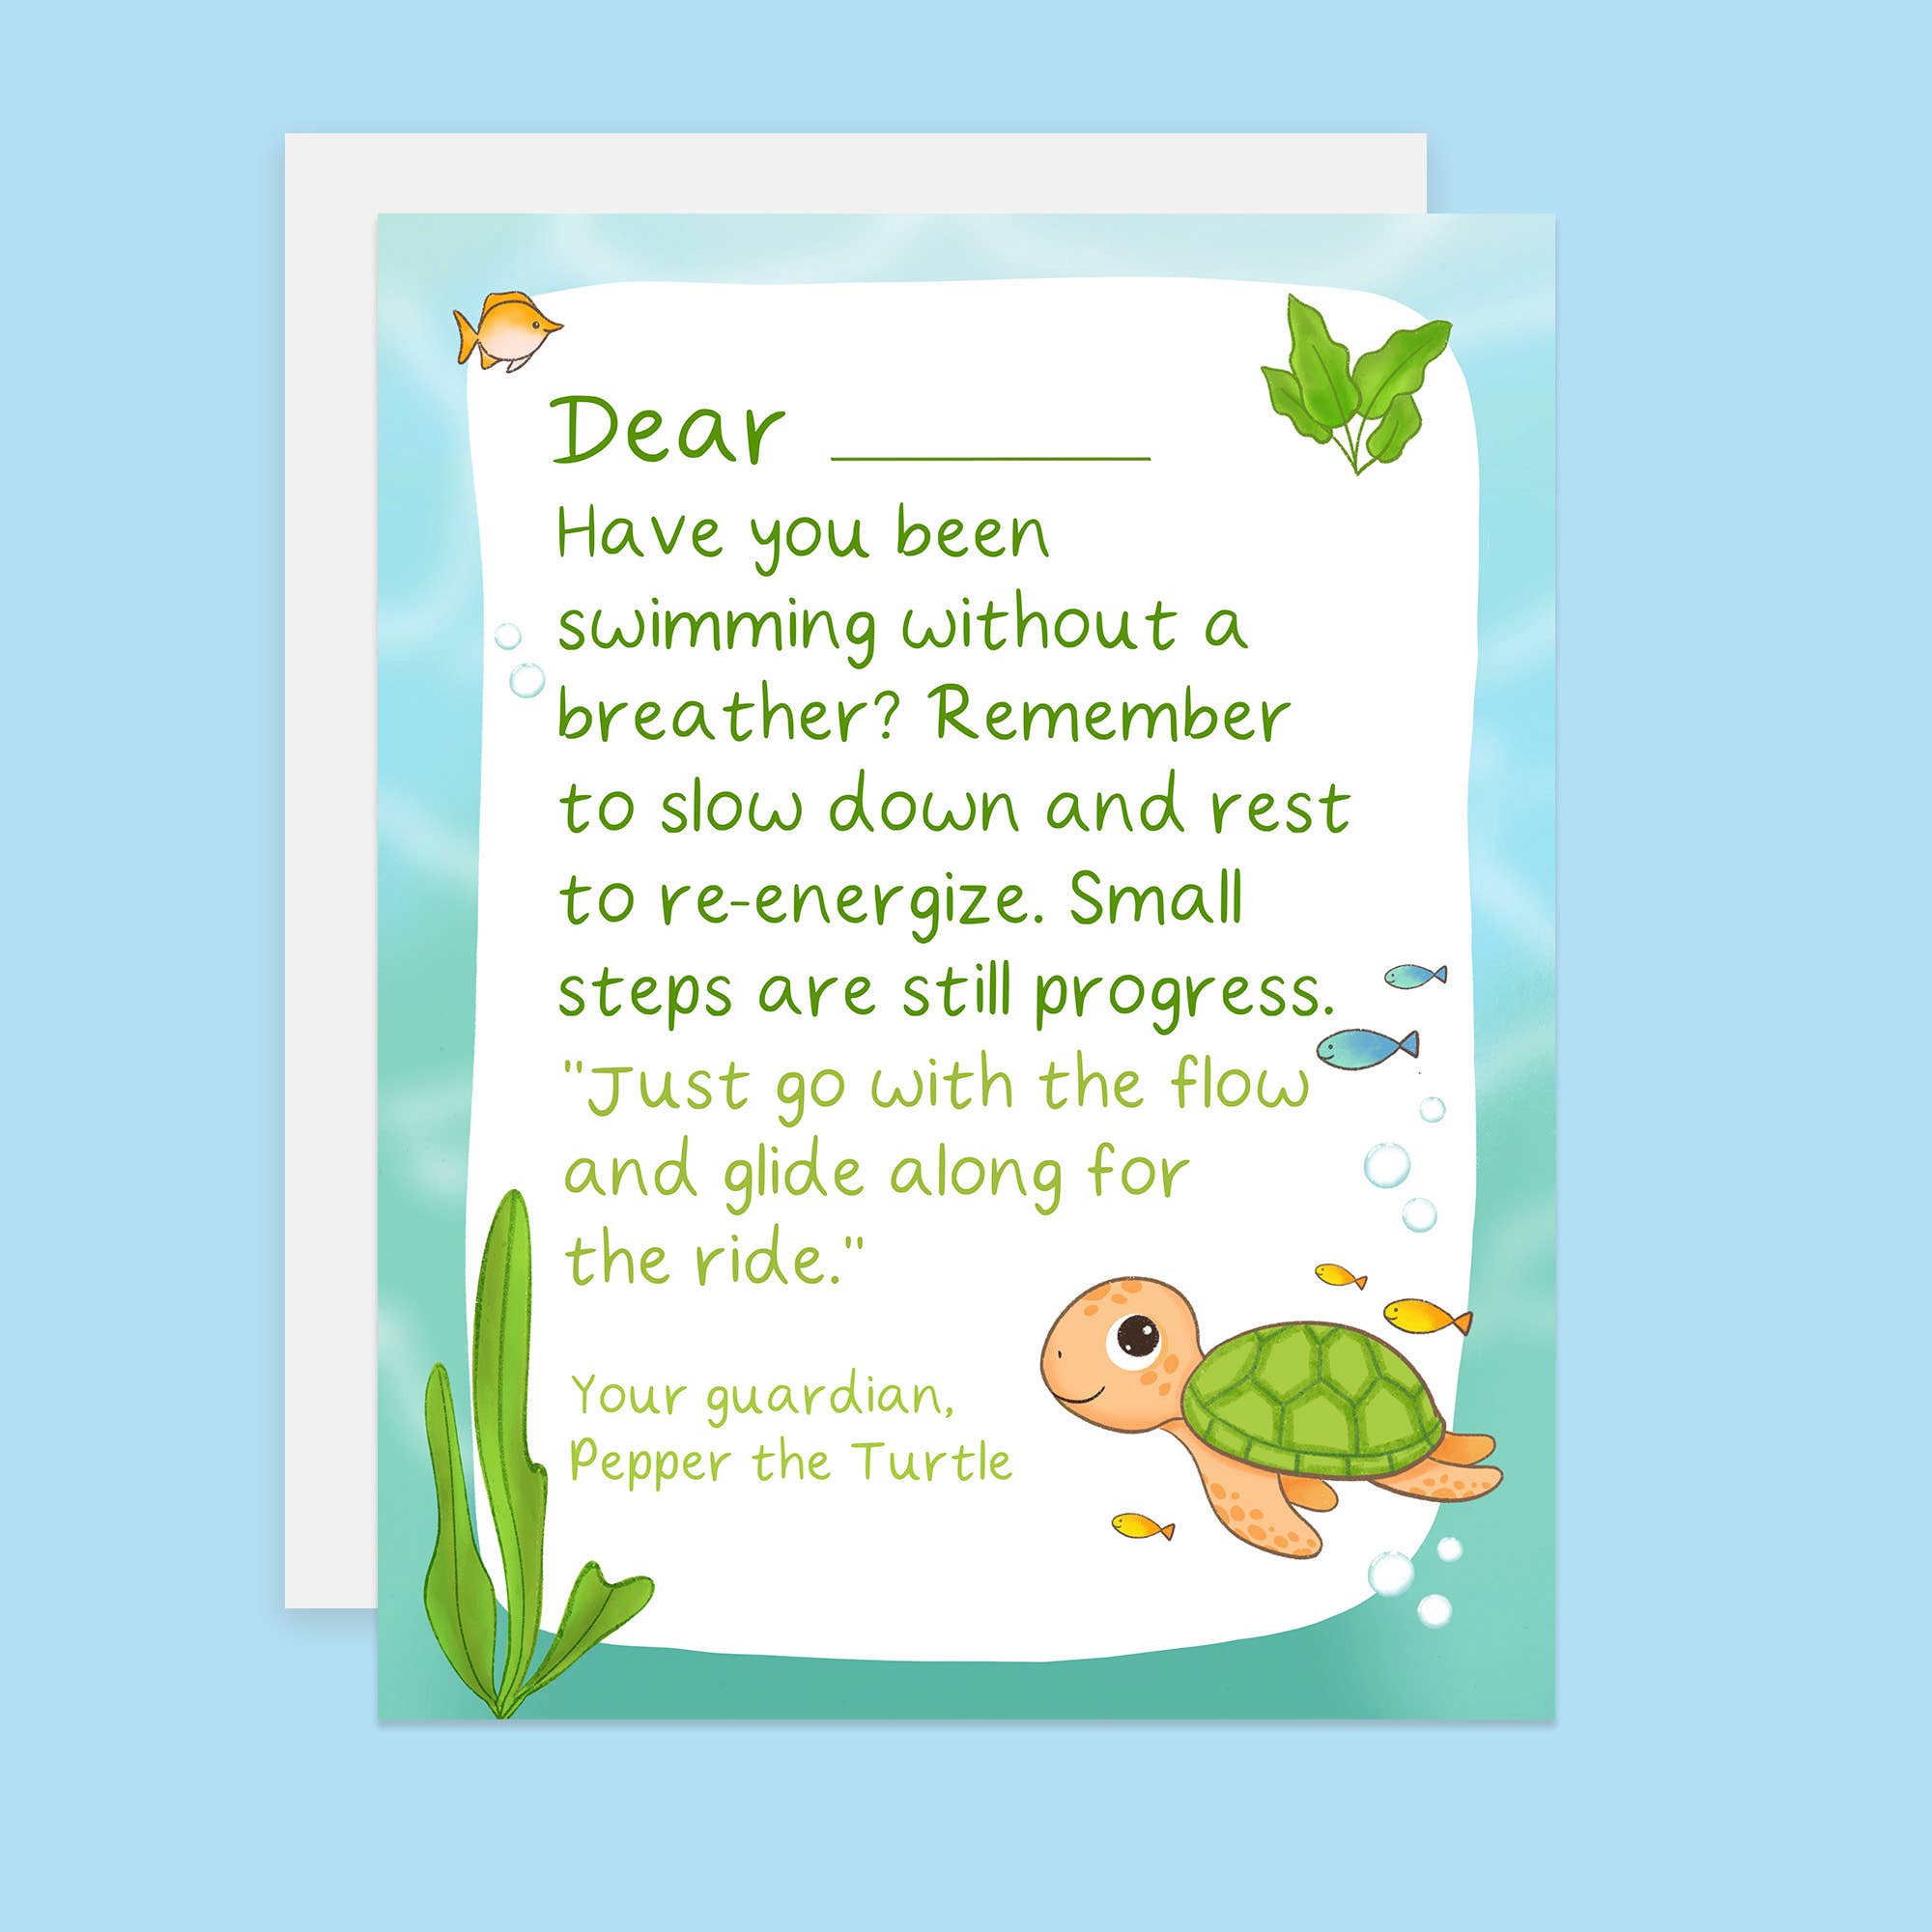 Dear __________
Have you been
swimming without a
breather? Remember
to slow down and rest
to re-energize. Small
steps are still progress.
"Just go with the flow
and glide along for
the ride."
Your guardian,
Pepper the Turtle